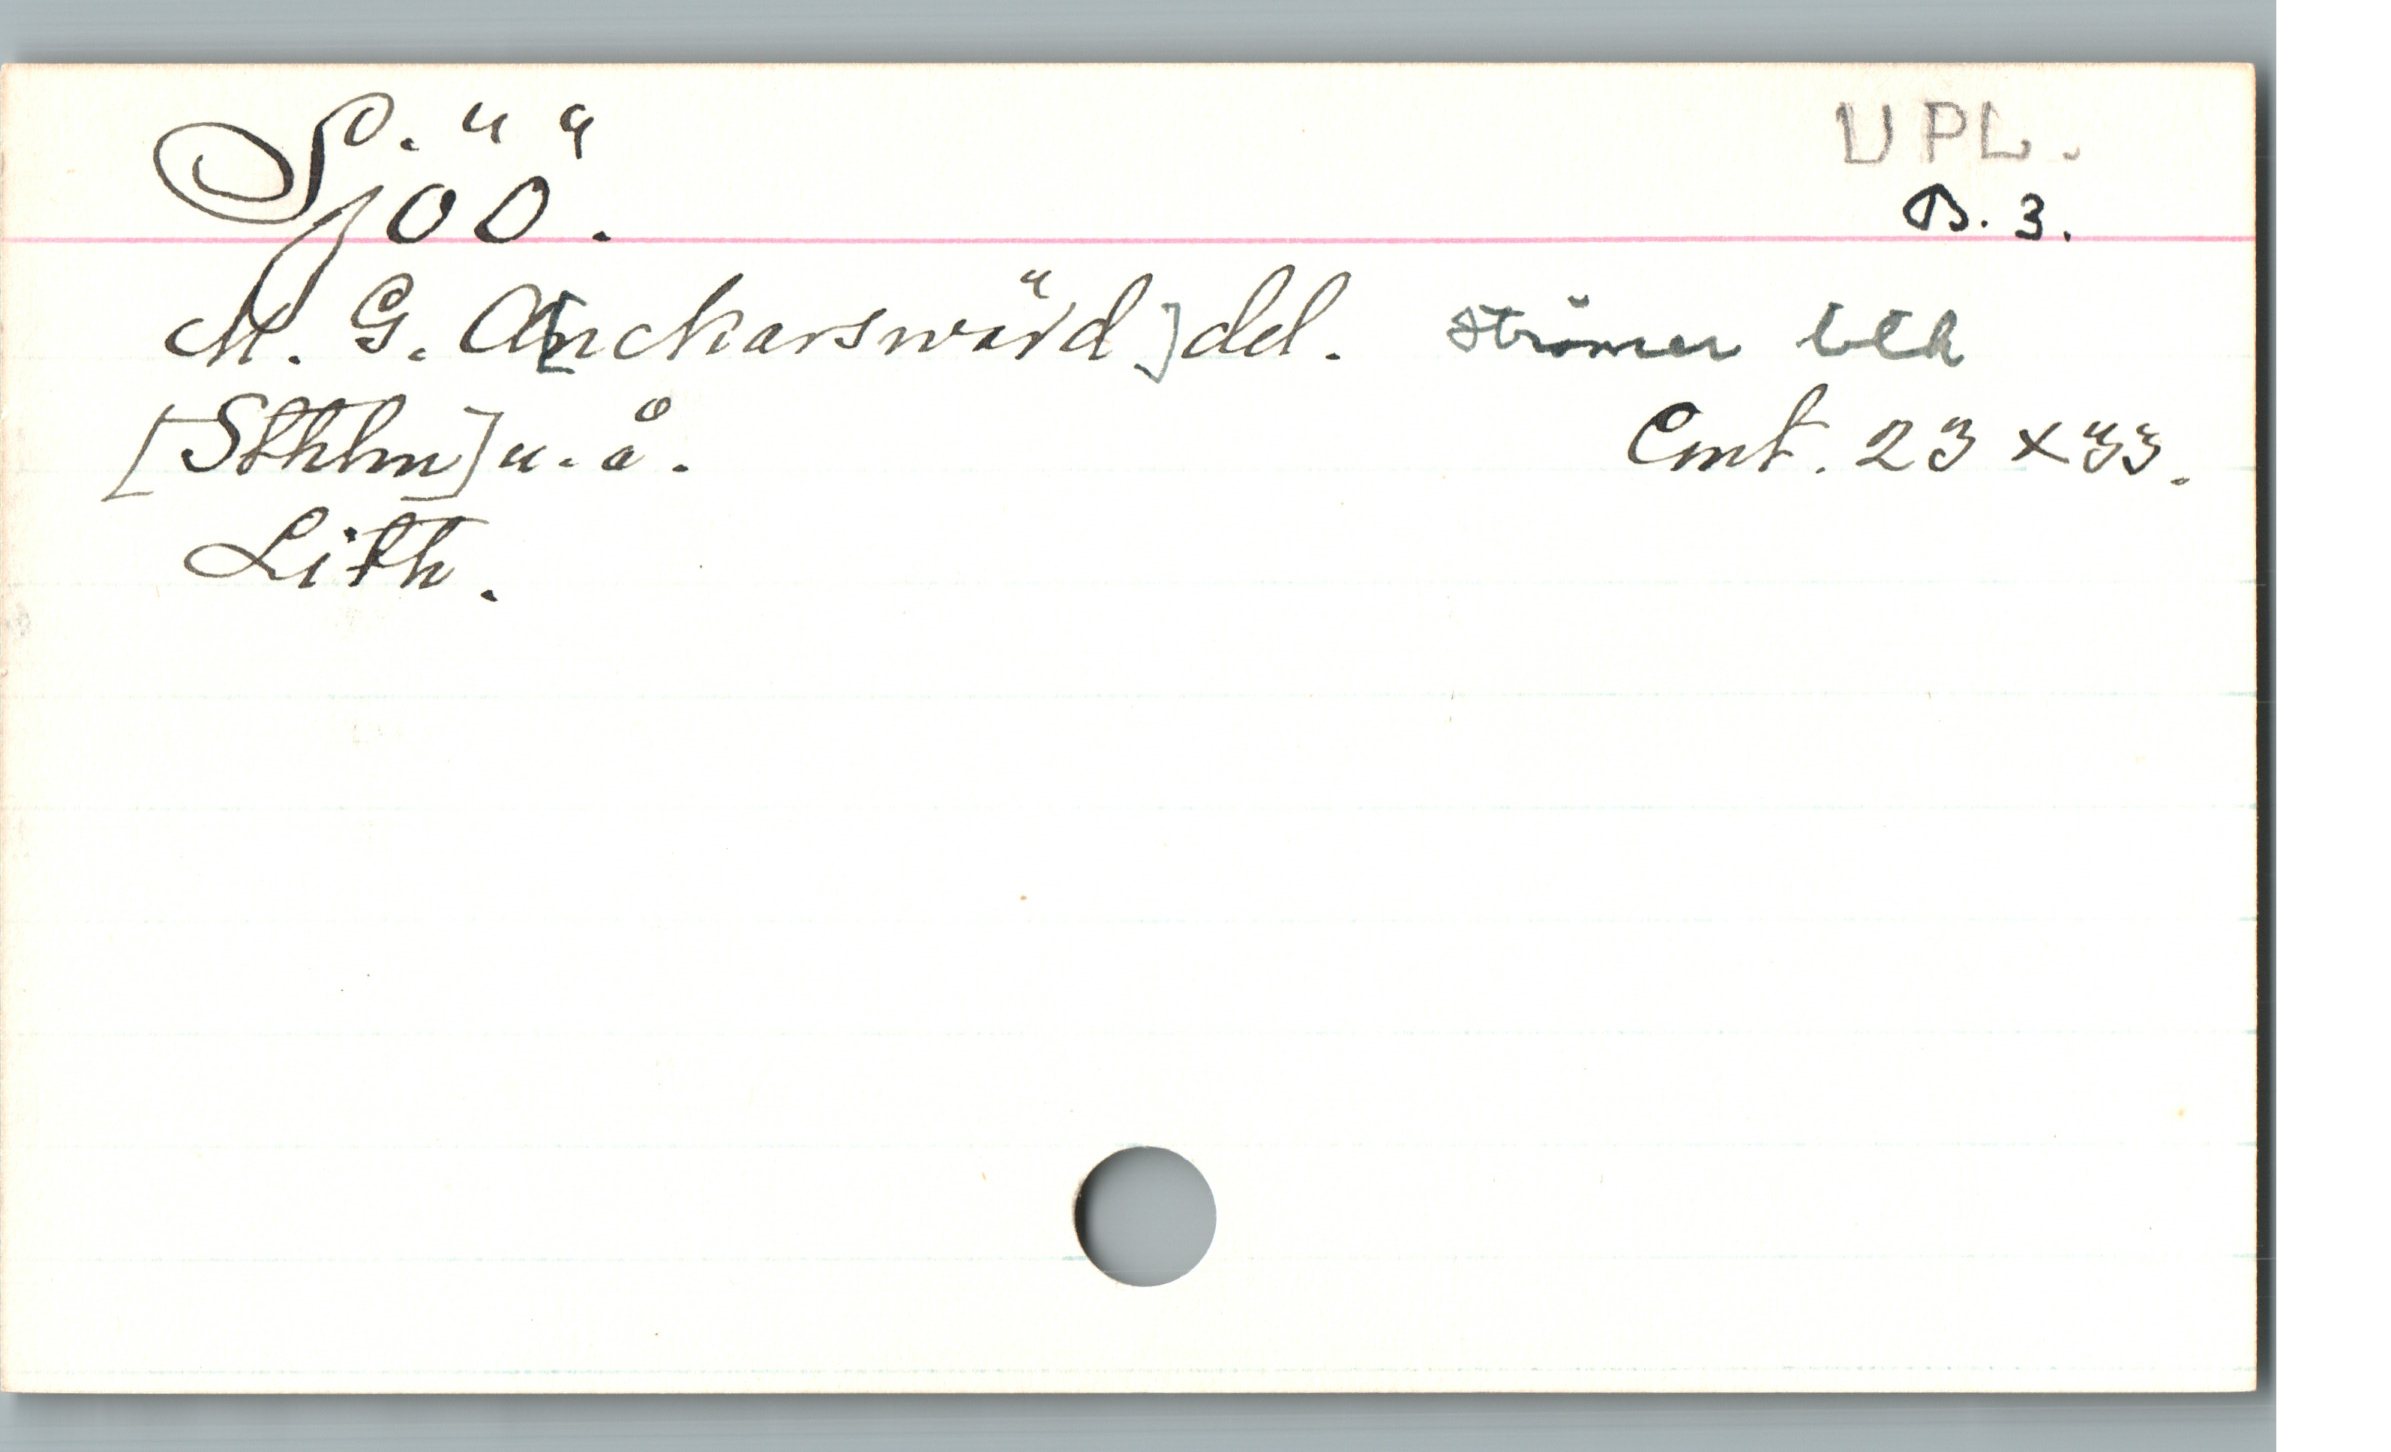 Sjöö.
UPL.
B. 3.
M. G. A[nckarswärd] del. Strömer lith
[Sthlm] u. å.
Cmt. 23 x 33.
Lith.